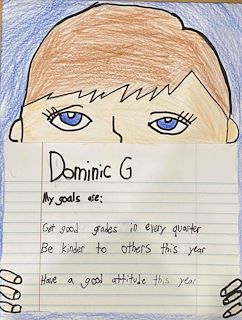 Dominic G
My goals are:
Get good grades in every quarter
Be kinder to others this year
Have a good attitude this year